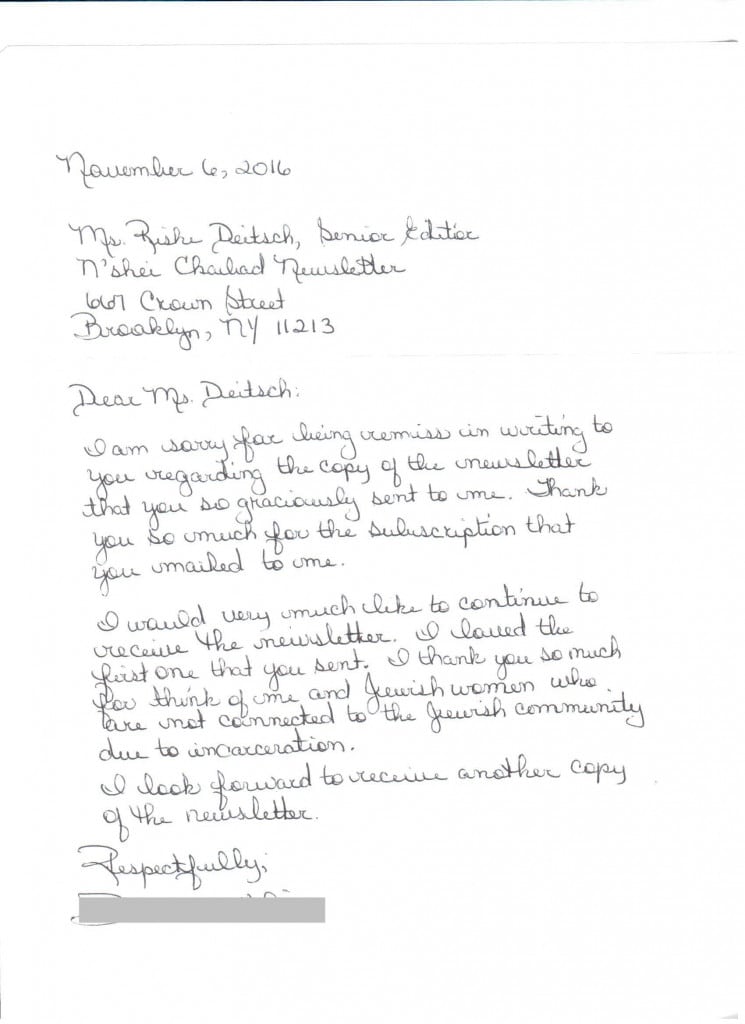 November 6, 2016
Ms. Rishe Deitsch, Senior Editior
N'shei Chabad Newsletter
667 Crown Street
Brooklyn, NY 11213
Dear Ms. Deitsch:
I am sorry for being remiss in writing to
you regarding the copy of the newsletter
that you so graciously sent to me. Thank
you so much for the subscription that
you mailed to me.
I would very much like to continue to
receive the newsletter. I loved the
first one that you sent. I thank you so much
for think of me and Jewish women who
are not connected to the Jewish community
due to incarceration.
I look forward to receive another copy
of the newsletter.
Respectfully,